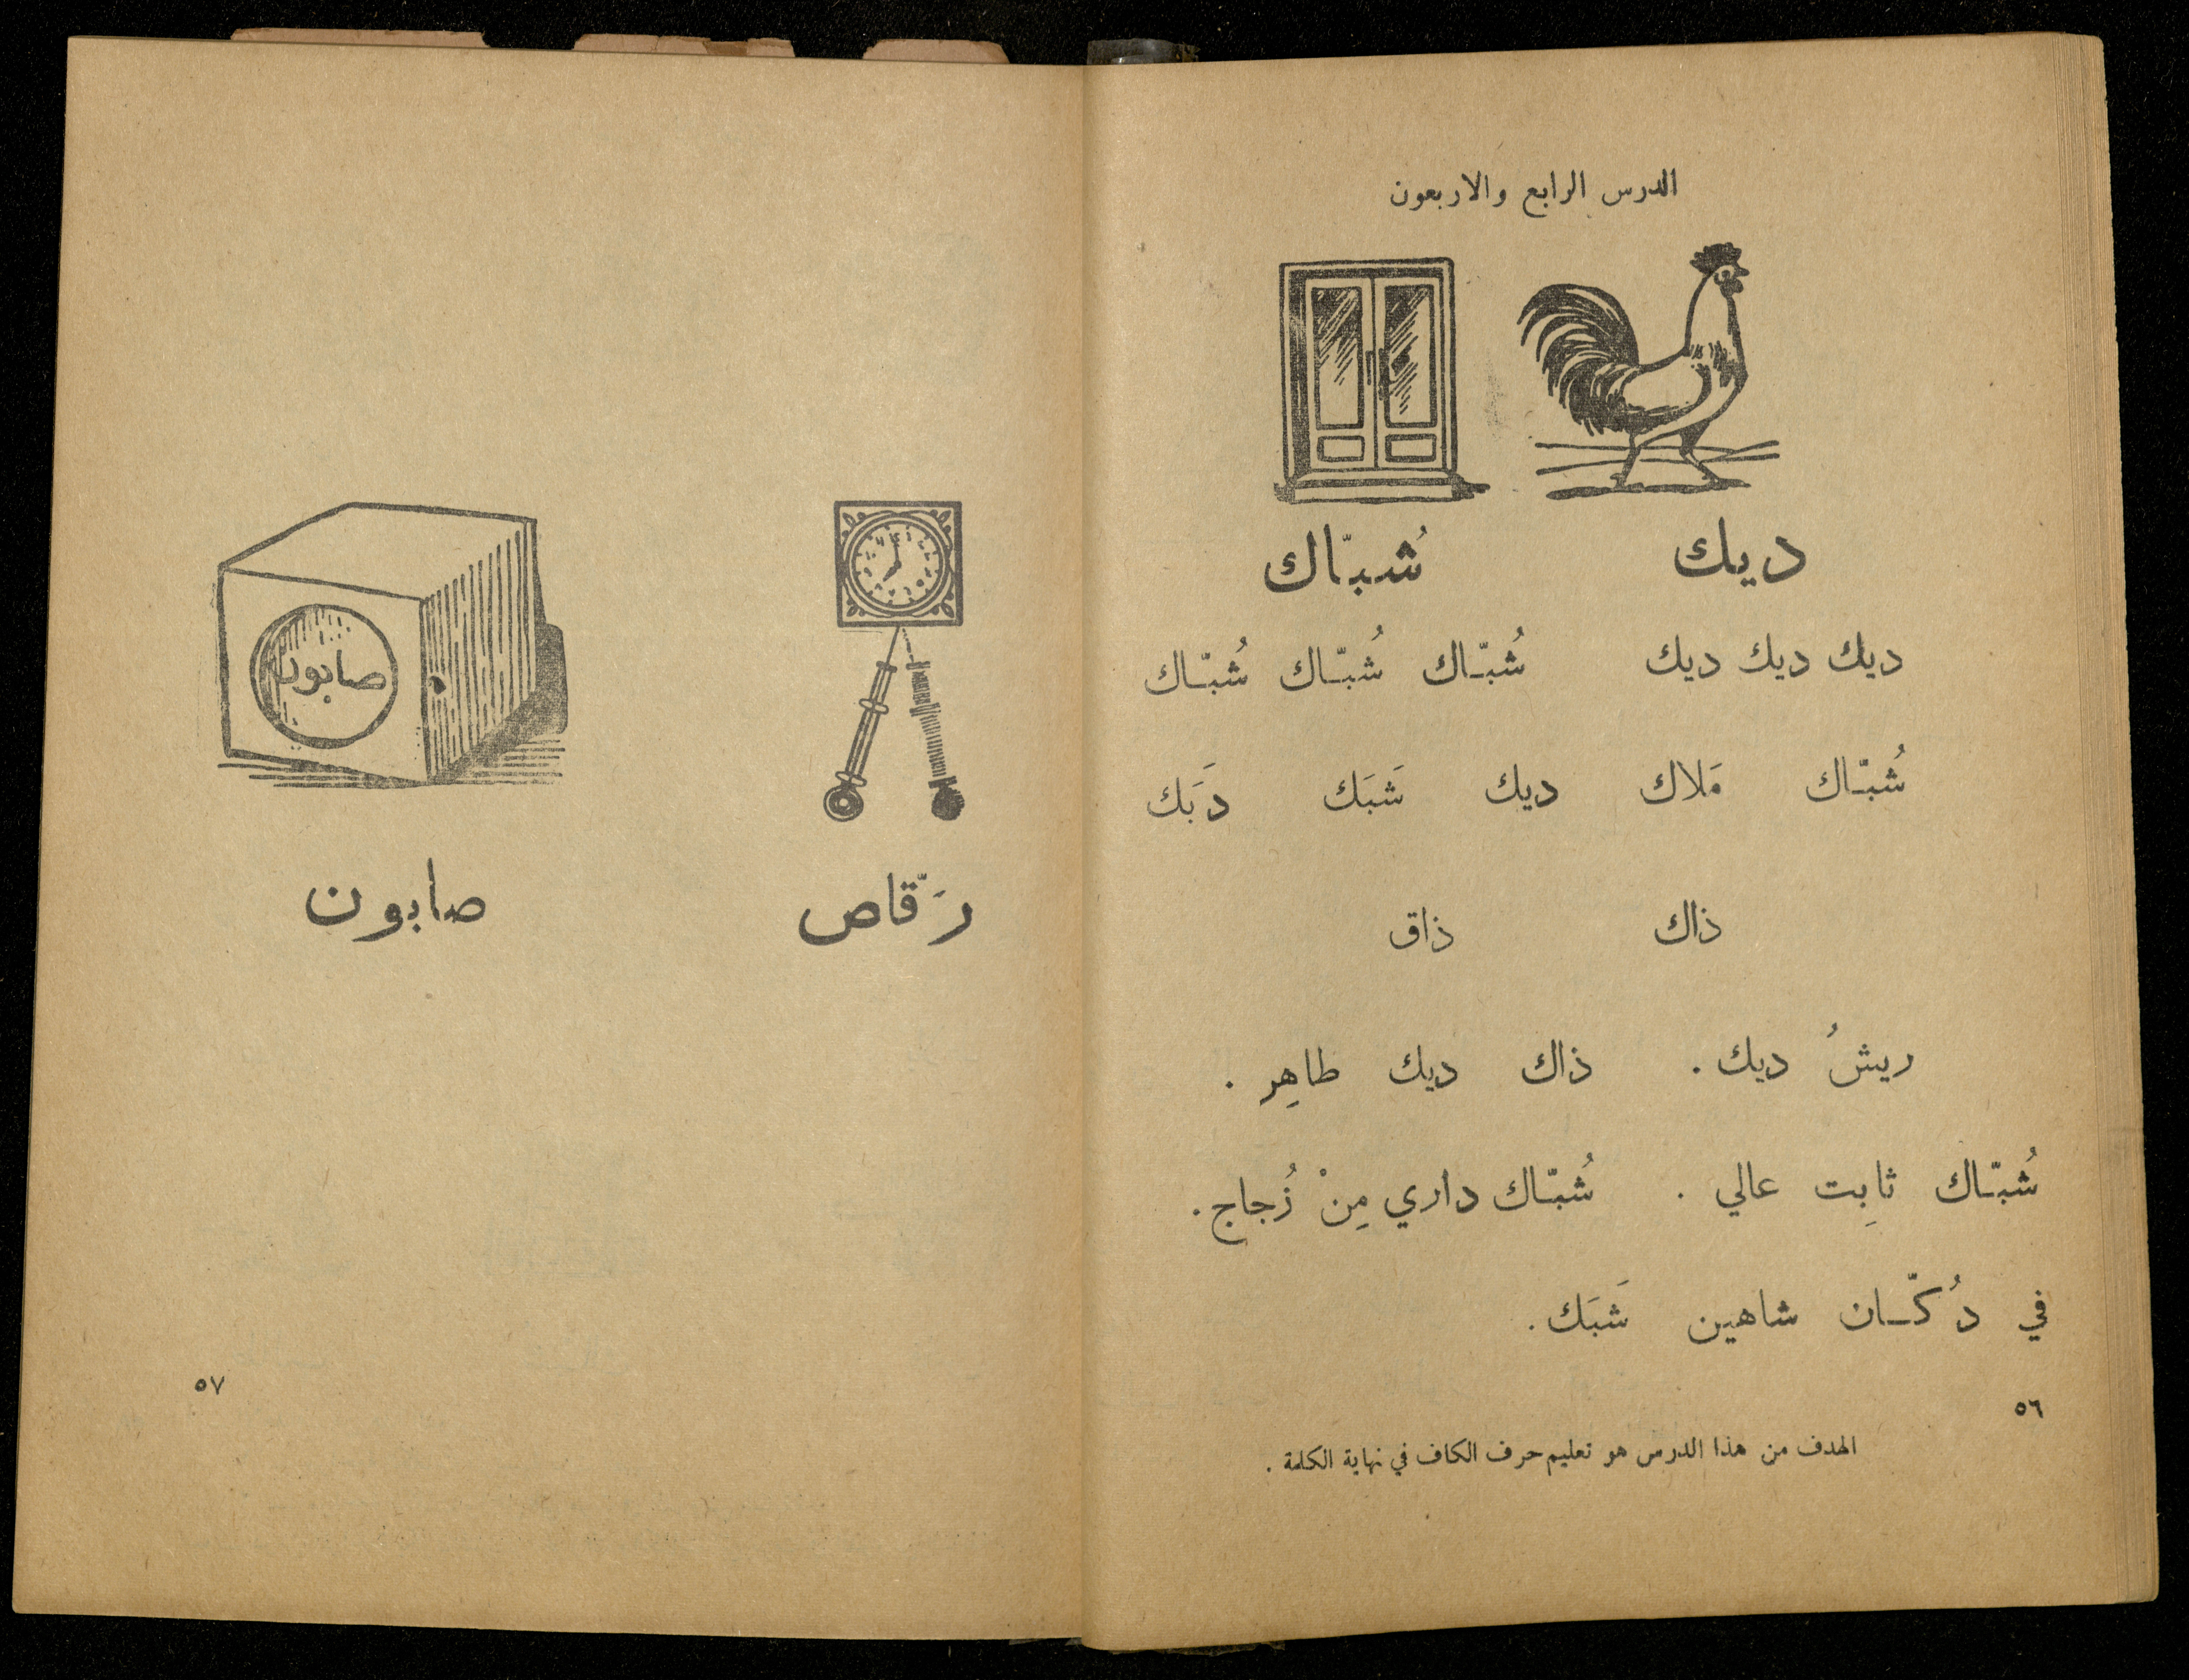 الدرس الرابع والاربعون
ديك شُبّاك
ديك ديك ديك شُبّـاك شُبّـاك شُبّـاك
شُبّـاك مَلاك ديك شَبَك دَبَك
ذاك ذاق
ريشُ ديك . ذاك ديك طاهِر .
شُبّـاك ثابِت عالي . شُبّـاك داري مِنْ زُجاج .
في دُكّـان شاهين شَبَك .
٥٦
الهدف من هذا الدرس هو تعليم حرف الكاف في نهاية الكلمة .
صابون
رَقّاص صابون
٥٧